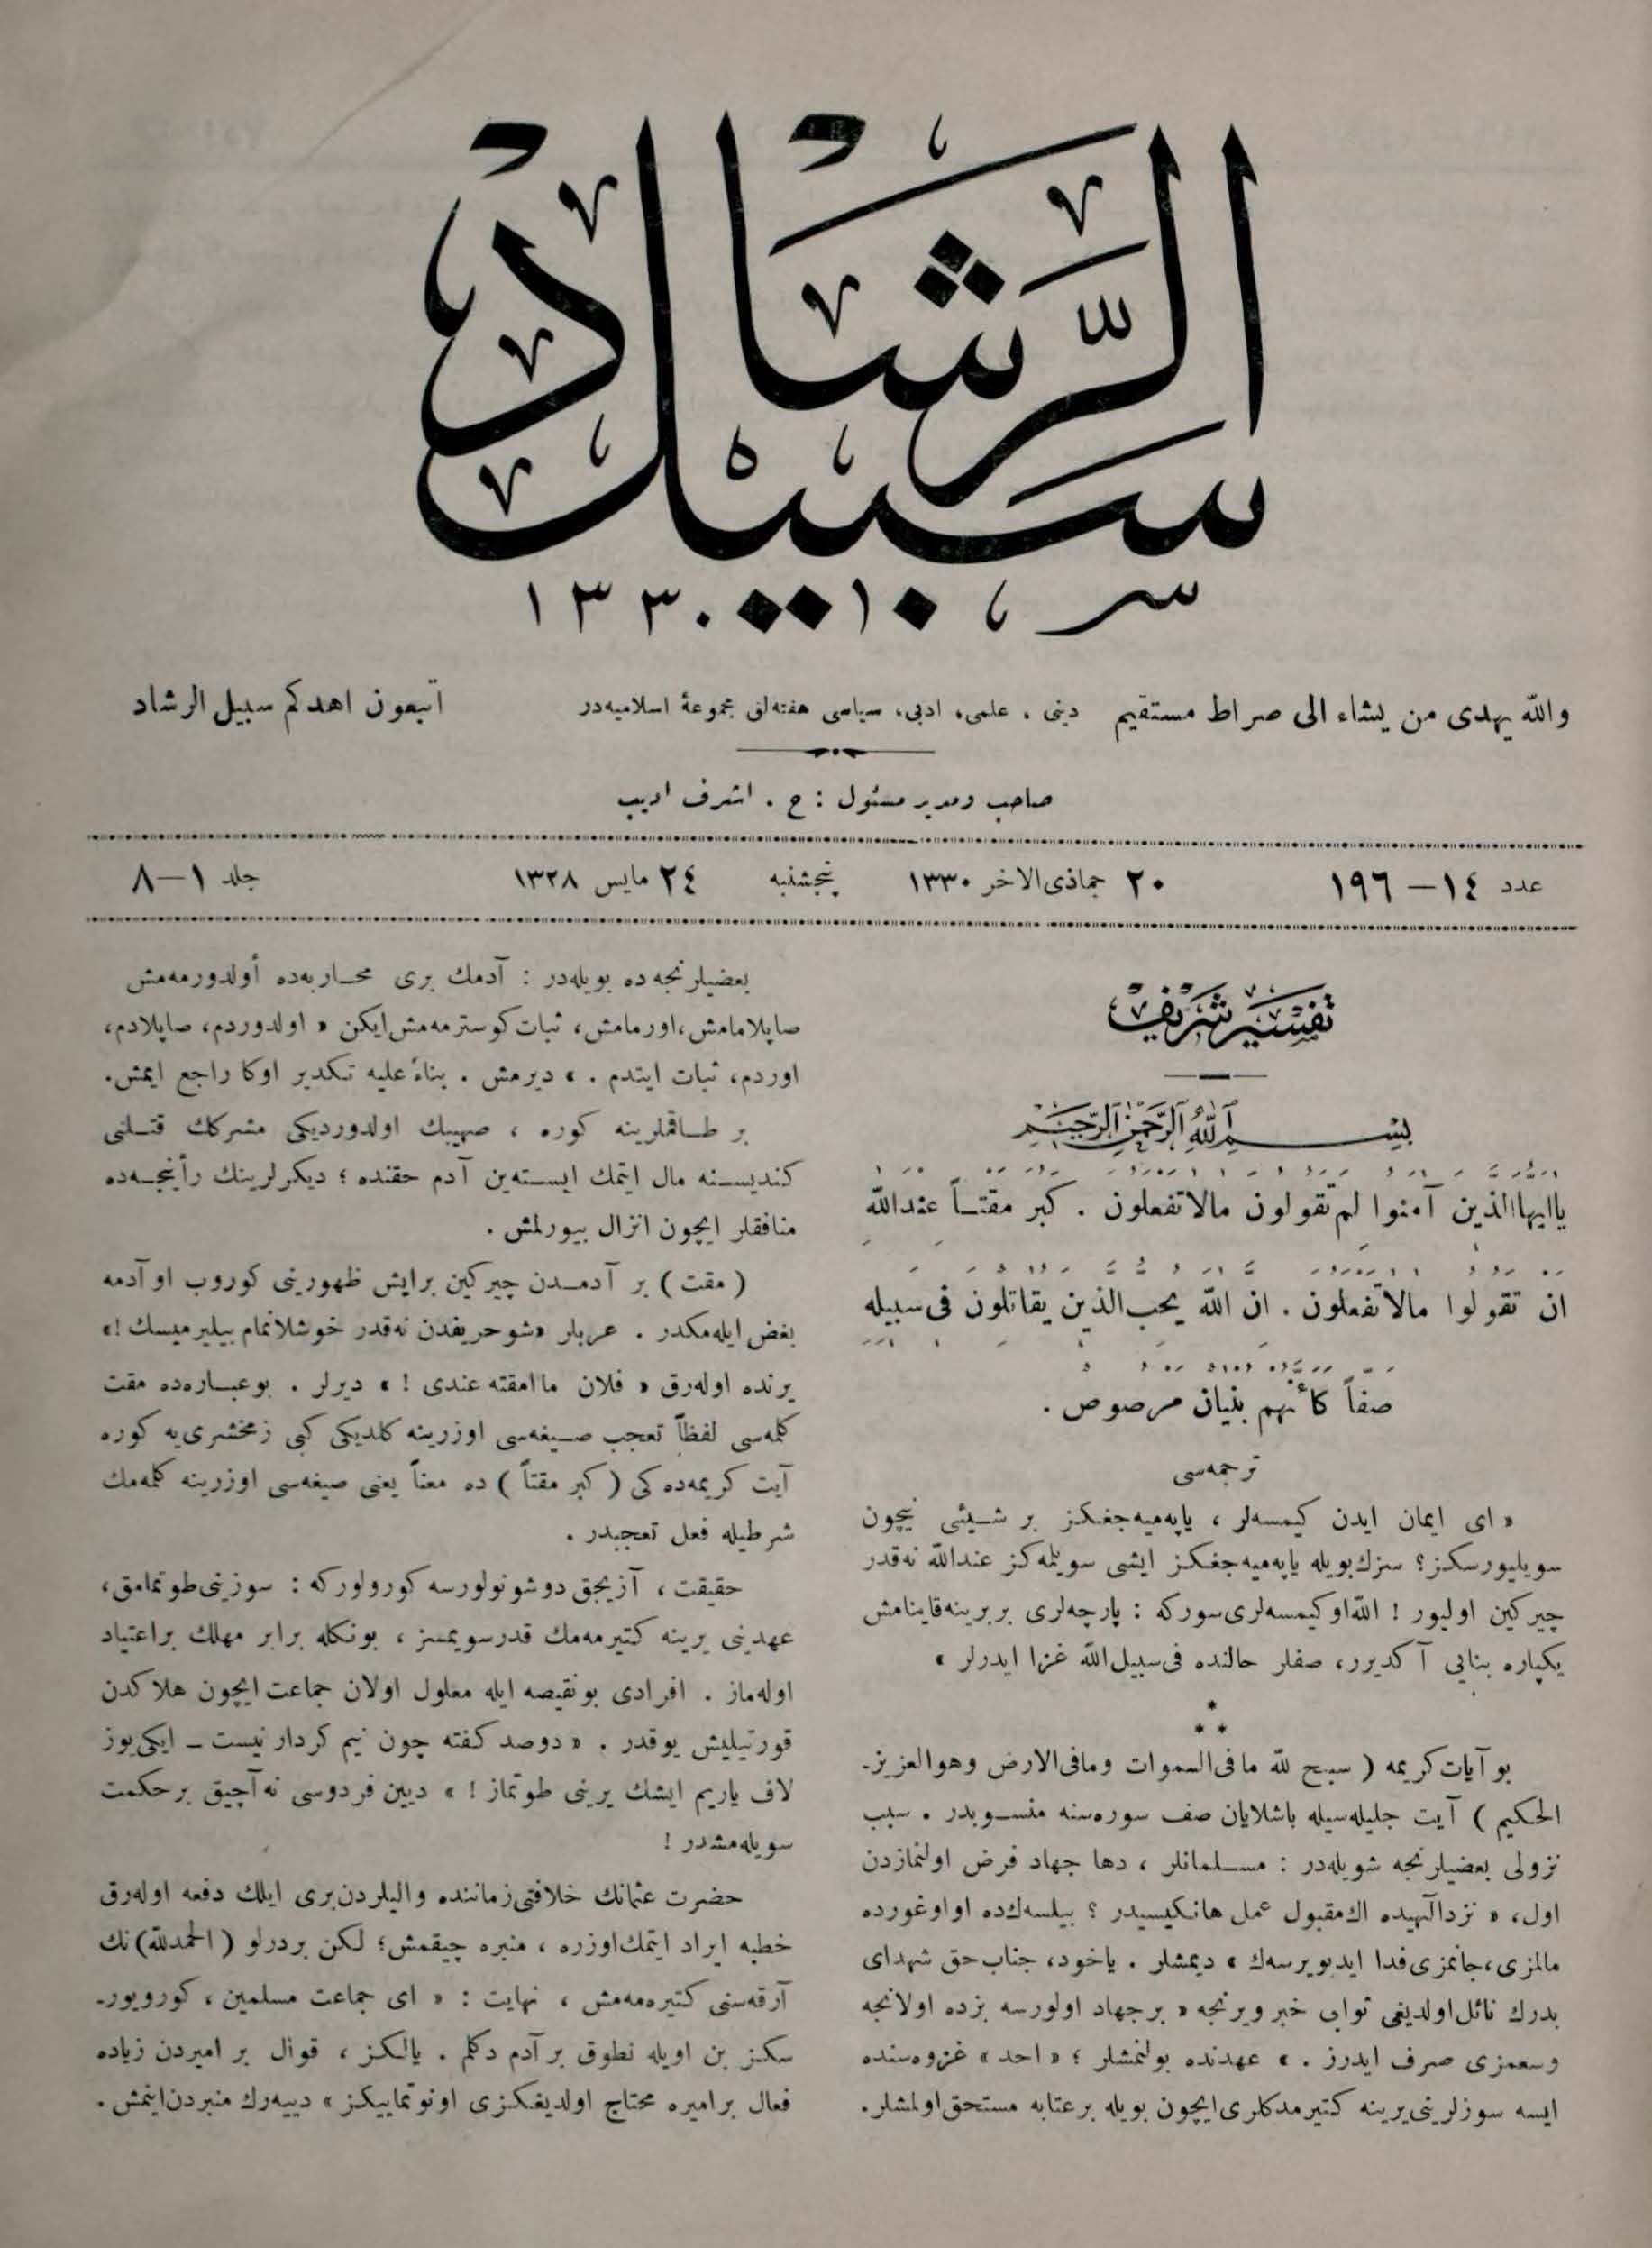 سبيل الرشاد
١٣٣٠
والله يهدى من يشاء الى صراط مستقيم
دينى ، علمى، ادبى، سياسى هفته‌لق مجموعۀ اسلاميه‌در
اتبعون اهدكم سبيل الرشاد
صاحب ومدير مسئول : ح . اشرف اديب
عدد ١٤ – ١٩٦
٢٠ جماذى‌الاخر ١٣٣٠
پنجشنبه
٢٤ مايس ١٣٢٨
جلد ١–٨
تفسير شريف
بسم الله الرحمن الرحيم
ياايهاالذين آمنوا لم تقولون مالاتفعلون . كبر مقتــاً عندالله
ان تقولوا مالاتفعلون . ان الله يحب‌الذين يقاتلون فى‌سبيله
صفاً كأنهم بنيان مرصوص .
ترجمه‌سى
« اى ايمان ايدن كيمسه‌لر ، ياپه‌ميه‌جغكز بر شــيئى نيچون
سويليورسكز؟ سزك بويله ياپه‌ميه‌جغكز ايشى سويلمه‌كز عندالله نه‌قدر
چيركين اوليور ! الله‌اوكيمسه‌لرى‌سوركه : پارچه‌لرى بربرينه‌قاينامش
يكپاره بنايى آكديرر، صفلر حالنده فى‌سبيل‌الله غزا ايدرلر »
* * *
بو آيات كريمه ( سبح لله مافى‌السموات ومافى‌الارض وهوالعزيز-
الحكيم ) آيت جليله‌سيله باشلايان صف سوره‌سنه منســوبدر . سبب
نزولى بعضيلرنجه شويله‌در : مســلمانلر ، دها جهاد فرض اولنمازدن
اول، « نزدالهيده اك‌مقبول عمل هانكيسيدر ؟ بيلسه‌ك‌ده او اوغورده
مالمزى،جانمزى‌فدا ايديويرسه‌ك » ديمشلر . ياخود، جناب حق شهداى
بدرك نائل‌اولديغى ثوابى خبر ويرنجه « بر جهاد اولورسه بزده اولانجه
وسعمزى صرف ايدرز . » عهدنده بولنمشلر ؛ « احد » غزوه‌سنده
ايسه سوزلرينى‌يرينه كتيرمدكلرى‌ايچون بويله برعتابه مستحق‌اولمشلر.
بعضيلرنجه ده بويله‌در : آدمك برى محــاربه‌ده أولدورمه‌مش
صاپلامامش،اورمامش، ثبات‌كوسترمه‌مش‌ايكن « اولدوردم، صاپلادم،
اوردم، ثبات ايتدم . » ديرمش . بناءً عليه تكدير اوكا راجع ايمش.
بر طــاقملرينه كوره ، صهيبك اولدورديكى مشركك قتــلنى
كنديســنه مال ايتمك ايســته‌ين آدم حقنده ؛ ديكرلرينك رأينجــه‌ده
منافقلر ايچون انزال بيورلمش .
( مقت ) بر آدمــدن چيركين برايش ظهورينى كوروب او آدمه
بغض ايله‌مكدر . عربلر «شو حريفدن نه‌قدر خوشلانمام بيليرميسك !»
يرنده اوله‌رق « فلان ماامقته عندى ! » ديرلر . بوعبــاره‌ده مقت
كلمه‌سى لفظاً تعجب صــيغه‌سى اوزرينه كلديكى كبى زمخشرى‌يه كوره
آيت كريمه‌ده كى ( كبر مقتاً ) ده معناً يعنى صيغه‌سى اوزرينه كلمه‌مك
شرطيله فعل تعجبدر .
حقيقت ، آزيجق دوشونولورسه كورولوركه : سوزينى‌طوتمامق،
عهدينى يرينه كتيرمه‌مك قدرسويمسز ، بونكله برابر مهلك براعتياد
اوله‌ماز . افرادى بونقيصه ايله معلول اولان جماعت ايچون هلاكدن
قورتيليش يوقدر . « دوصد كفته چون نيم كردار نيست – ايكى‌يوز
لاف ياريم ايشك يرينى طوتماز ! » ديين فردوسى نه‌آچيق برحكمت
سويله‌مشدر !
حضرت عثمانك خلافتى‌زماننده واليلردن‌برى ايلك دفعه اوله‌رق
خطبه ايراد ايتمك‌اوزره ، منبره چيقمش؛ لكن بردرلو (الحمدلله)نك
آرقه‌سنى كتيره‌مه‌مش ، نهايت : « اى جماعت مسلمين ، كورويور-
سكز بن اويله نطوق بر آدم دكلم . يالكز ، قوال بر اميردن زياده
فعال براميره محتاج اولديغكزى اونوتماييكز » دييه‌رك منبردن‌اينمش.